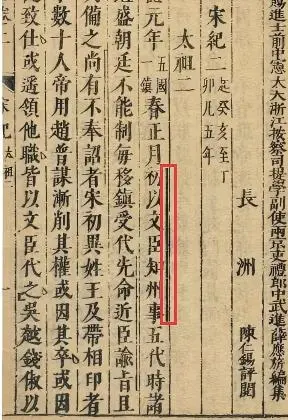 賜進士前中憲大夫浙江按察司提學副使兩京吏禮郎中武進薛應旂編集
長洲 陳仁錫評閱
宋紀二 起癸亥至丁卯凡五年
太祖二
德元年 五國一鎮 春正月初以文臣知州事五代時諸
盛朝廷不能制每移鎮受代先命近臣諭旨且
備之尚有不奉詔者宋初異姓王及帶相印者
數十人帝用趙普謀漸削其權或因其卒或因
致仕或遥領他職皆以文臣代之吳越錢俶以
宋紀 太祖二